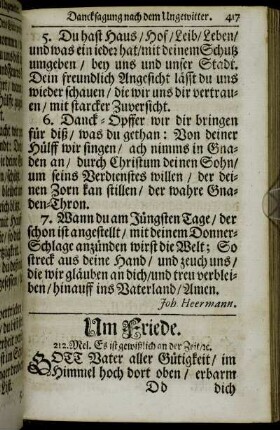 Dancksagung nach dem Ungewitter. 417
5. Du hast Haus / Hof / Leib / Leben /
und was ein jeder hat / mit deinem Schutz
umgeben / bey uns und unser Stadt.
Dein freundlich Angesicht lässt du uns
wieder schauen / die wir uns dir vertrau-
en / mit starcker Zuversicht.
6. Danck-Opffer wir dir bringen
für diß / was du gethan: Von deiner
Hülff wir singen / ach nimms in Gna-
den an / durch Christum deinen Sohn /
um seins Verdienstes willen / der dei-
nen Zorn kan stillen / der wahre Gna-
den-Thron.
7. Wann du am Jüngsten Tage / der
schon ist angestellt / mit deinem Donner-
Schlage anzünden wirst die Welt; So
streck aus deine Hand / und zeuch uns /
die wir gläuben an dich / und treu verblei-
ben / hinauff ins Vaterland / Amen.
Joh. Heermann.
Um Friede.
212. Mel. Es ist gewißlich an der Zeit / ꝛc.
GOTT Vater aller Gütigkeit / im
Himmel hoch dort oben / erbarm
Dd dich